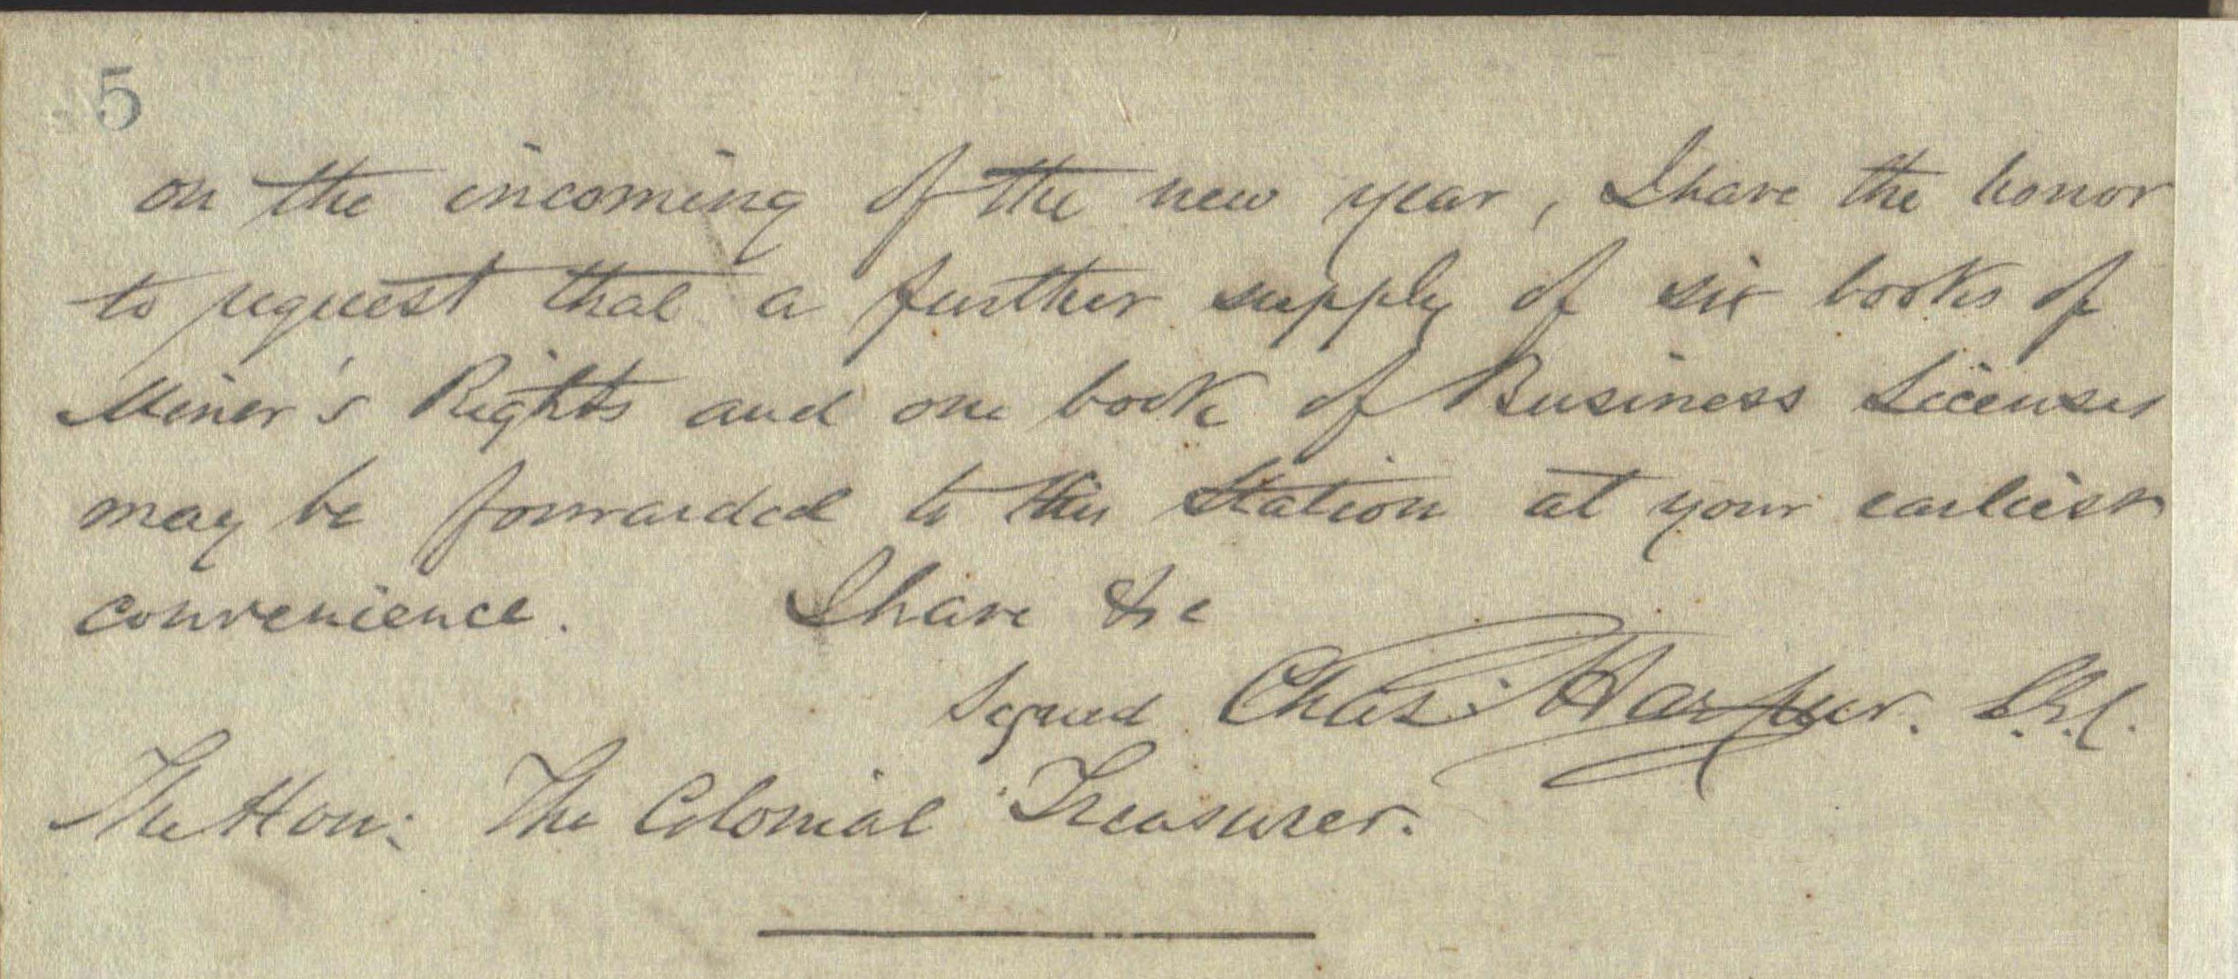 5
on the incoming of the new year, I have the honor
to request that a further supply of six books of
Miner's Rights and one book of Business Licenses
may be forwarded to this Station at your earliest
convenience. I have &c
Signed Chas. Harpur.
The Hon: The Colonial Treasurer.